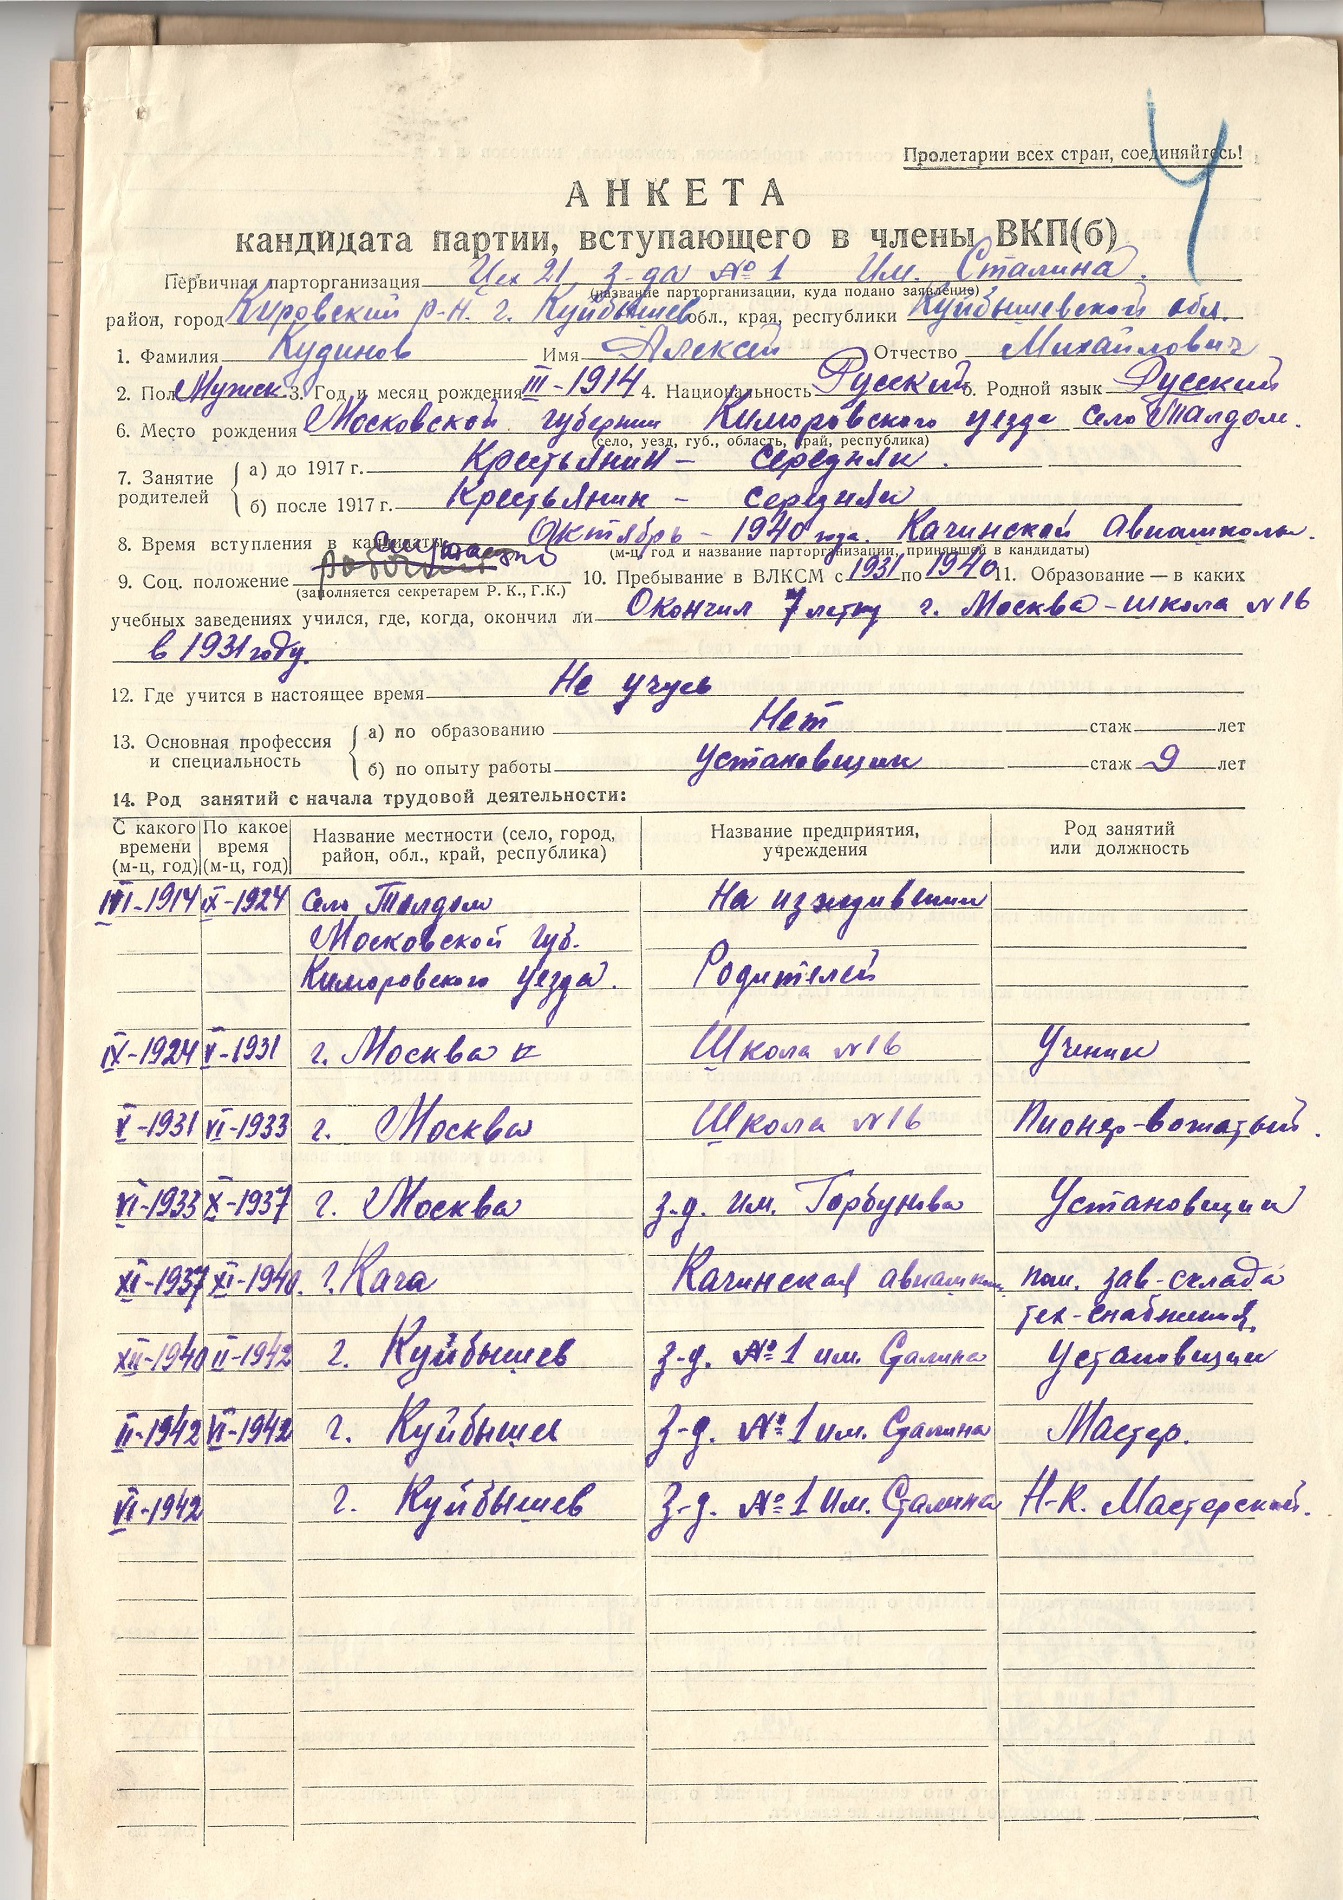 Пролетарии всех стран, соединяйтесь!
АНКЕТА
кандидата партии, вступающего в члены ВКП(б)
Первичная парторганизация Цех 21, з-да № 1 Им. Сталина.
(название парторганизации, куда подано заявление)
район, город Кировский р-н. г. Куйбышев обл., края, республики Куйбышевской обл.
1. Фамилия Кудинов Имя Алексей Отчество Михайлович
2. Пол Мужск. 3. Год и месяц рождения III-1914 4. Национальность Русский 5. Родной язык Русский
6. Место рождения Московской губернии Киморовского уезда село Талдом.
(село, уезд, губ., область, край, республика)
7. Занятие родителей
а) до 1917 г. Крестьянин - середняк.
б) после 1917 г. Крестьянин - середняк
8. Время вступления в кандидаты Октябрь - 1940 года. Качинской авиашколы.
(м-ц, год и название парторганизации, принявшей в кандидаты)
9. Соц. положение рабочий 10. Пребывание в ВЛКСМ с 1931 по 1940 11. Образование — в каких
(заполняется секретарем Р. К., Г.К.)
учебных заведениях учился, где, когда, окончил ли Окончил 7 летку г. Москва - школа N 16
в 1931 году.
12. Где учится в настоящее время Не учусь
13. Основная профессия и специальность
а) по образованию Нет стаж лет
б) по опыту работы Установщик стаж 9 лет
14. Род занятий с начала трудовой деятельности:
С какого времени (м-ц, год) По какое время (м-ц, год) Название местности (село, город, район, обл., край, республика) Название предприятия, учреждения Род занятий или должность
III-1914 IX-1924 село Талдом На изждивении
Московской губ.
Киморовского уезда. Родителей
IX-1924 V-1931 г. Москва Школа N 16 Ученик
V-1931 VI-1933 г. Москва Школа N 16 Пионер-вожатый.
VI-1933 X-1937 г. Москва з-д. им. Горбунова Установщик
XI-1937 XI-1940. г. Кача Качинская авиашкола пом. зав-склада
тех-снабжения.
XII-1940 II-1942 г. Куйбышев з-д. № 1 им. Сталина Установщик
II-1942 VI-1942 г. Куйбышев з-д. № 1 им. Сталина Мастер.
VI-1942 г. Куйбышев з-д. № 1 им. Сталина Н-к. Мастерской.